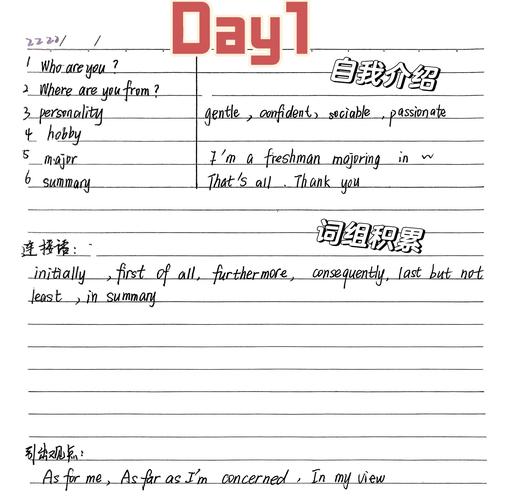 Day1
222/ /
自我介绍
1 Who are you ?
2 Where are you from ?
3 personality gentle , confident, sociable , passionate
4 hobby
5 major I'm a freshman majoring in ~
6 summary That's all . Thank you
词组积累
连接语:
initially , first of all, furthermore, consequently, last but not
least , in summary
引出观点:
As for me, As far as I'm concerned , In my view